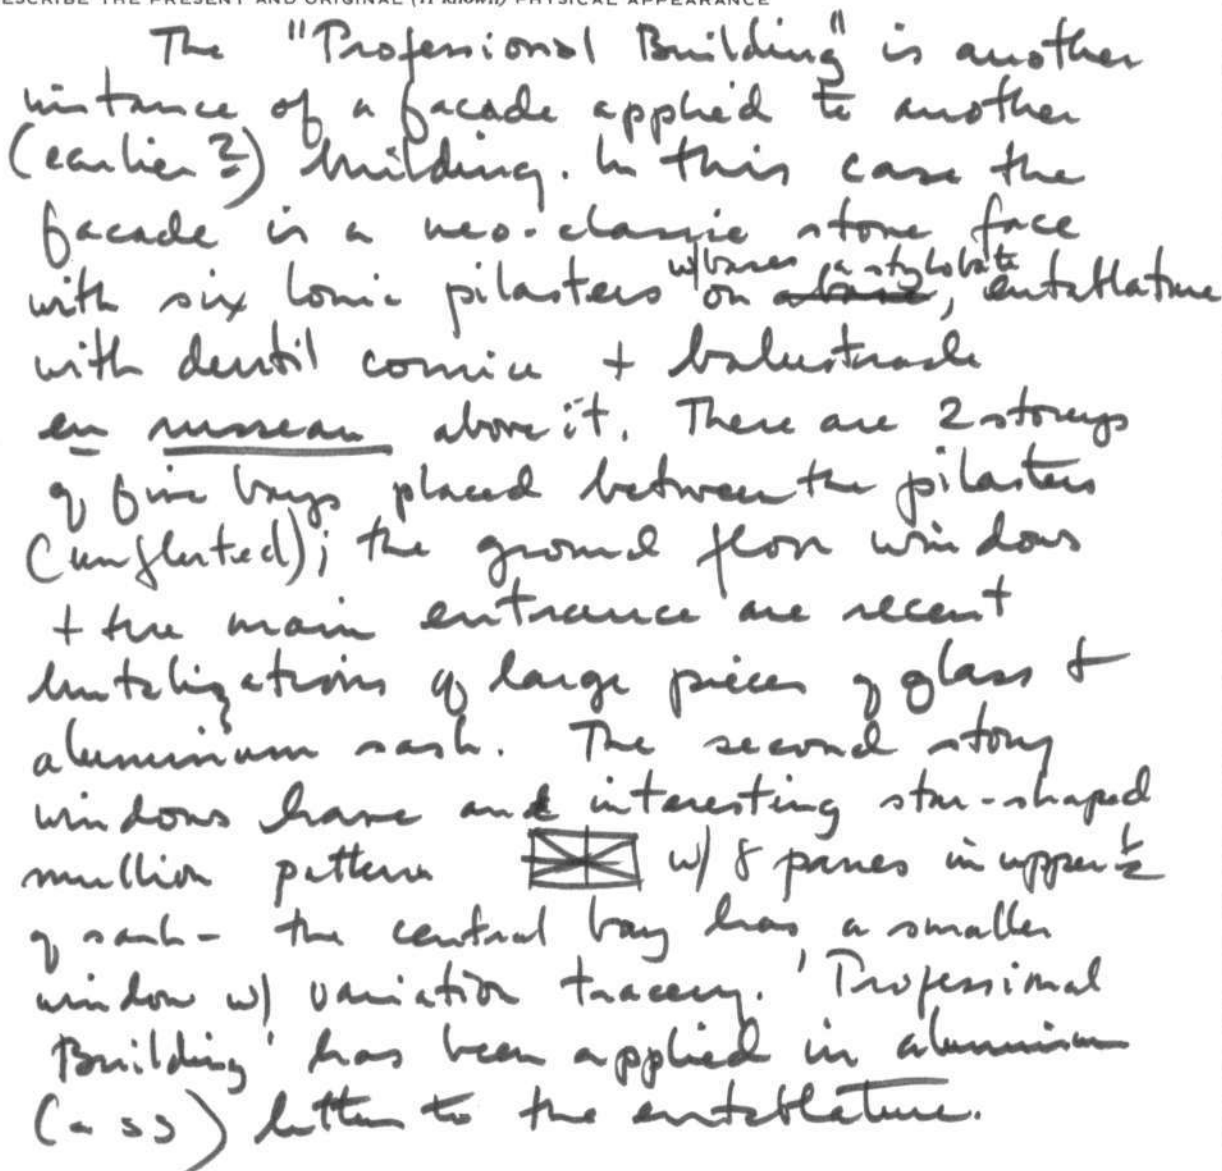 DESCRIBE THE PRESENT AND ORIGINAL (if known) PHYSICAL APPEARANCE
The "Professional Building" is another
instance of a facade applied to another
(earlier?) building. In this case the
facade is a neo-classic stone face
w/bases a stylobate
with six Ionic pilasters on a base, entablature
with dentil cornice + balustrade
en above it. There are 2 storeys
of five bays placed between the pilasters
(unfluted); the ground floor windows
+ the main entrance are recent
brutalizations of large pieces of glass +
aluminium sash. The second story
windows have an interesting star-shaped
mullion pattern w/ 8 panes in upper ½
of sash - the central bay has a smaller
window w/ variation tracery. 'Professional
Building' has been applied in aluminium
(or SS) letters to the entablature.